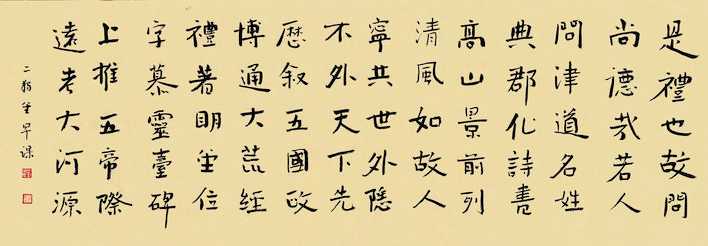 是禮也故問
尚德哉若人
問津道名姓
典郡化詩書
高山景前列
清風如故人
寧共世外隱
不外天下先
歷叙五國政
博通大荒經
禮著明堂位
字慕靈臺碑
上推五帝際
遠考大河源
二堂早課